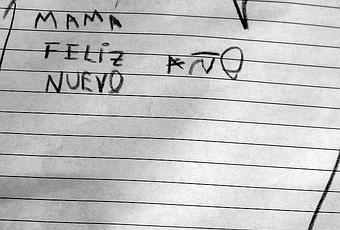 MAMA
FELiZ AÑO
NUEVO